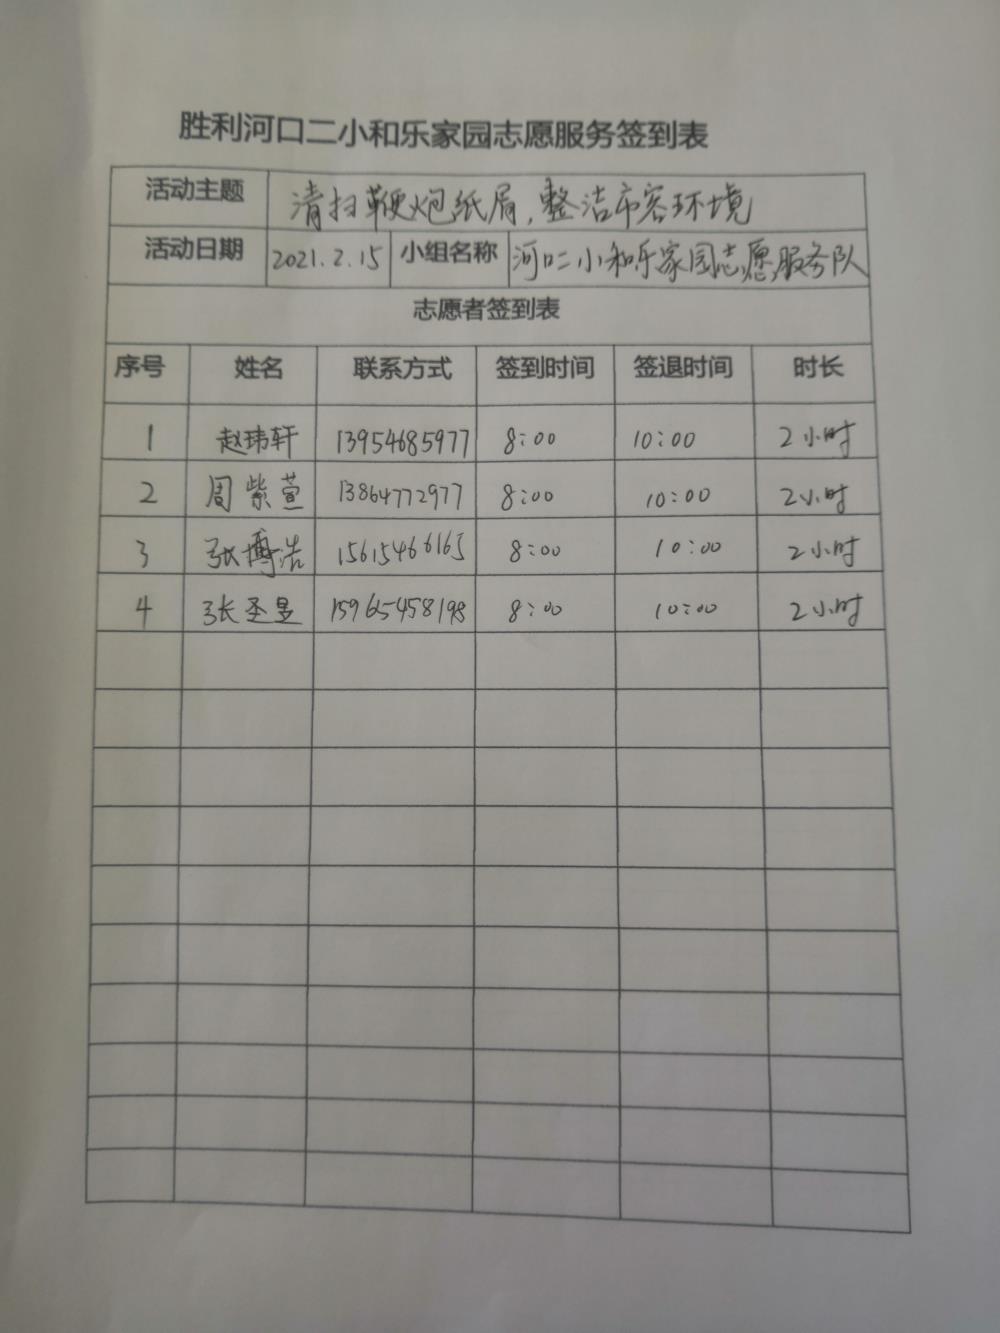 胜利河口二小和乐家园志愿服务签到表
活动主题 清扫鞭炮纸屑，整洁市容环境
活动日期 2021.2.15 小组名称 河口二小和乐家园志愿服务队
志愿者签到表
序号 姓名 联系方式 签到时间 签退时间 时长
1 赵玮轩 13954685977 8:00 10:00 2小时
2 周紫萱 13864772977 8:00 10:00 2小时
3 张博浩 15615466163 8:00 10:00 2小时
4 张圣昱 15965458198 8:00 10:00 2小时